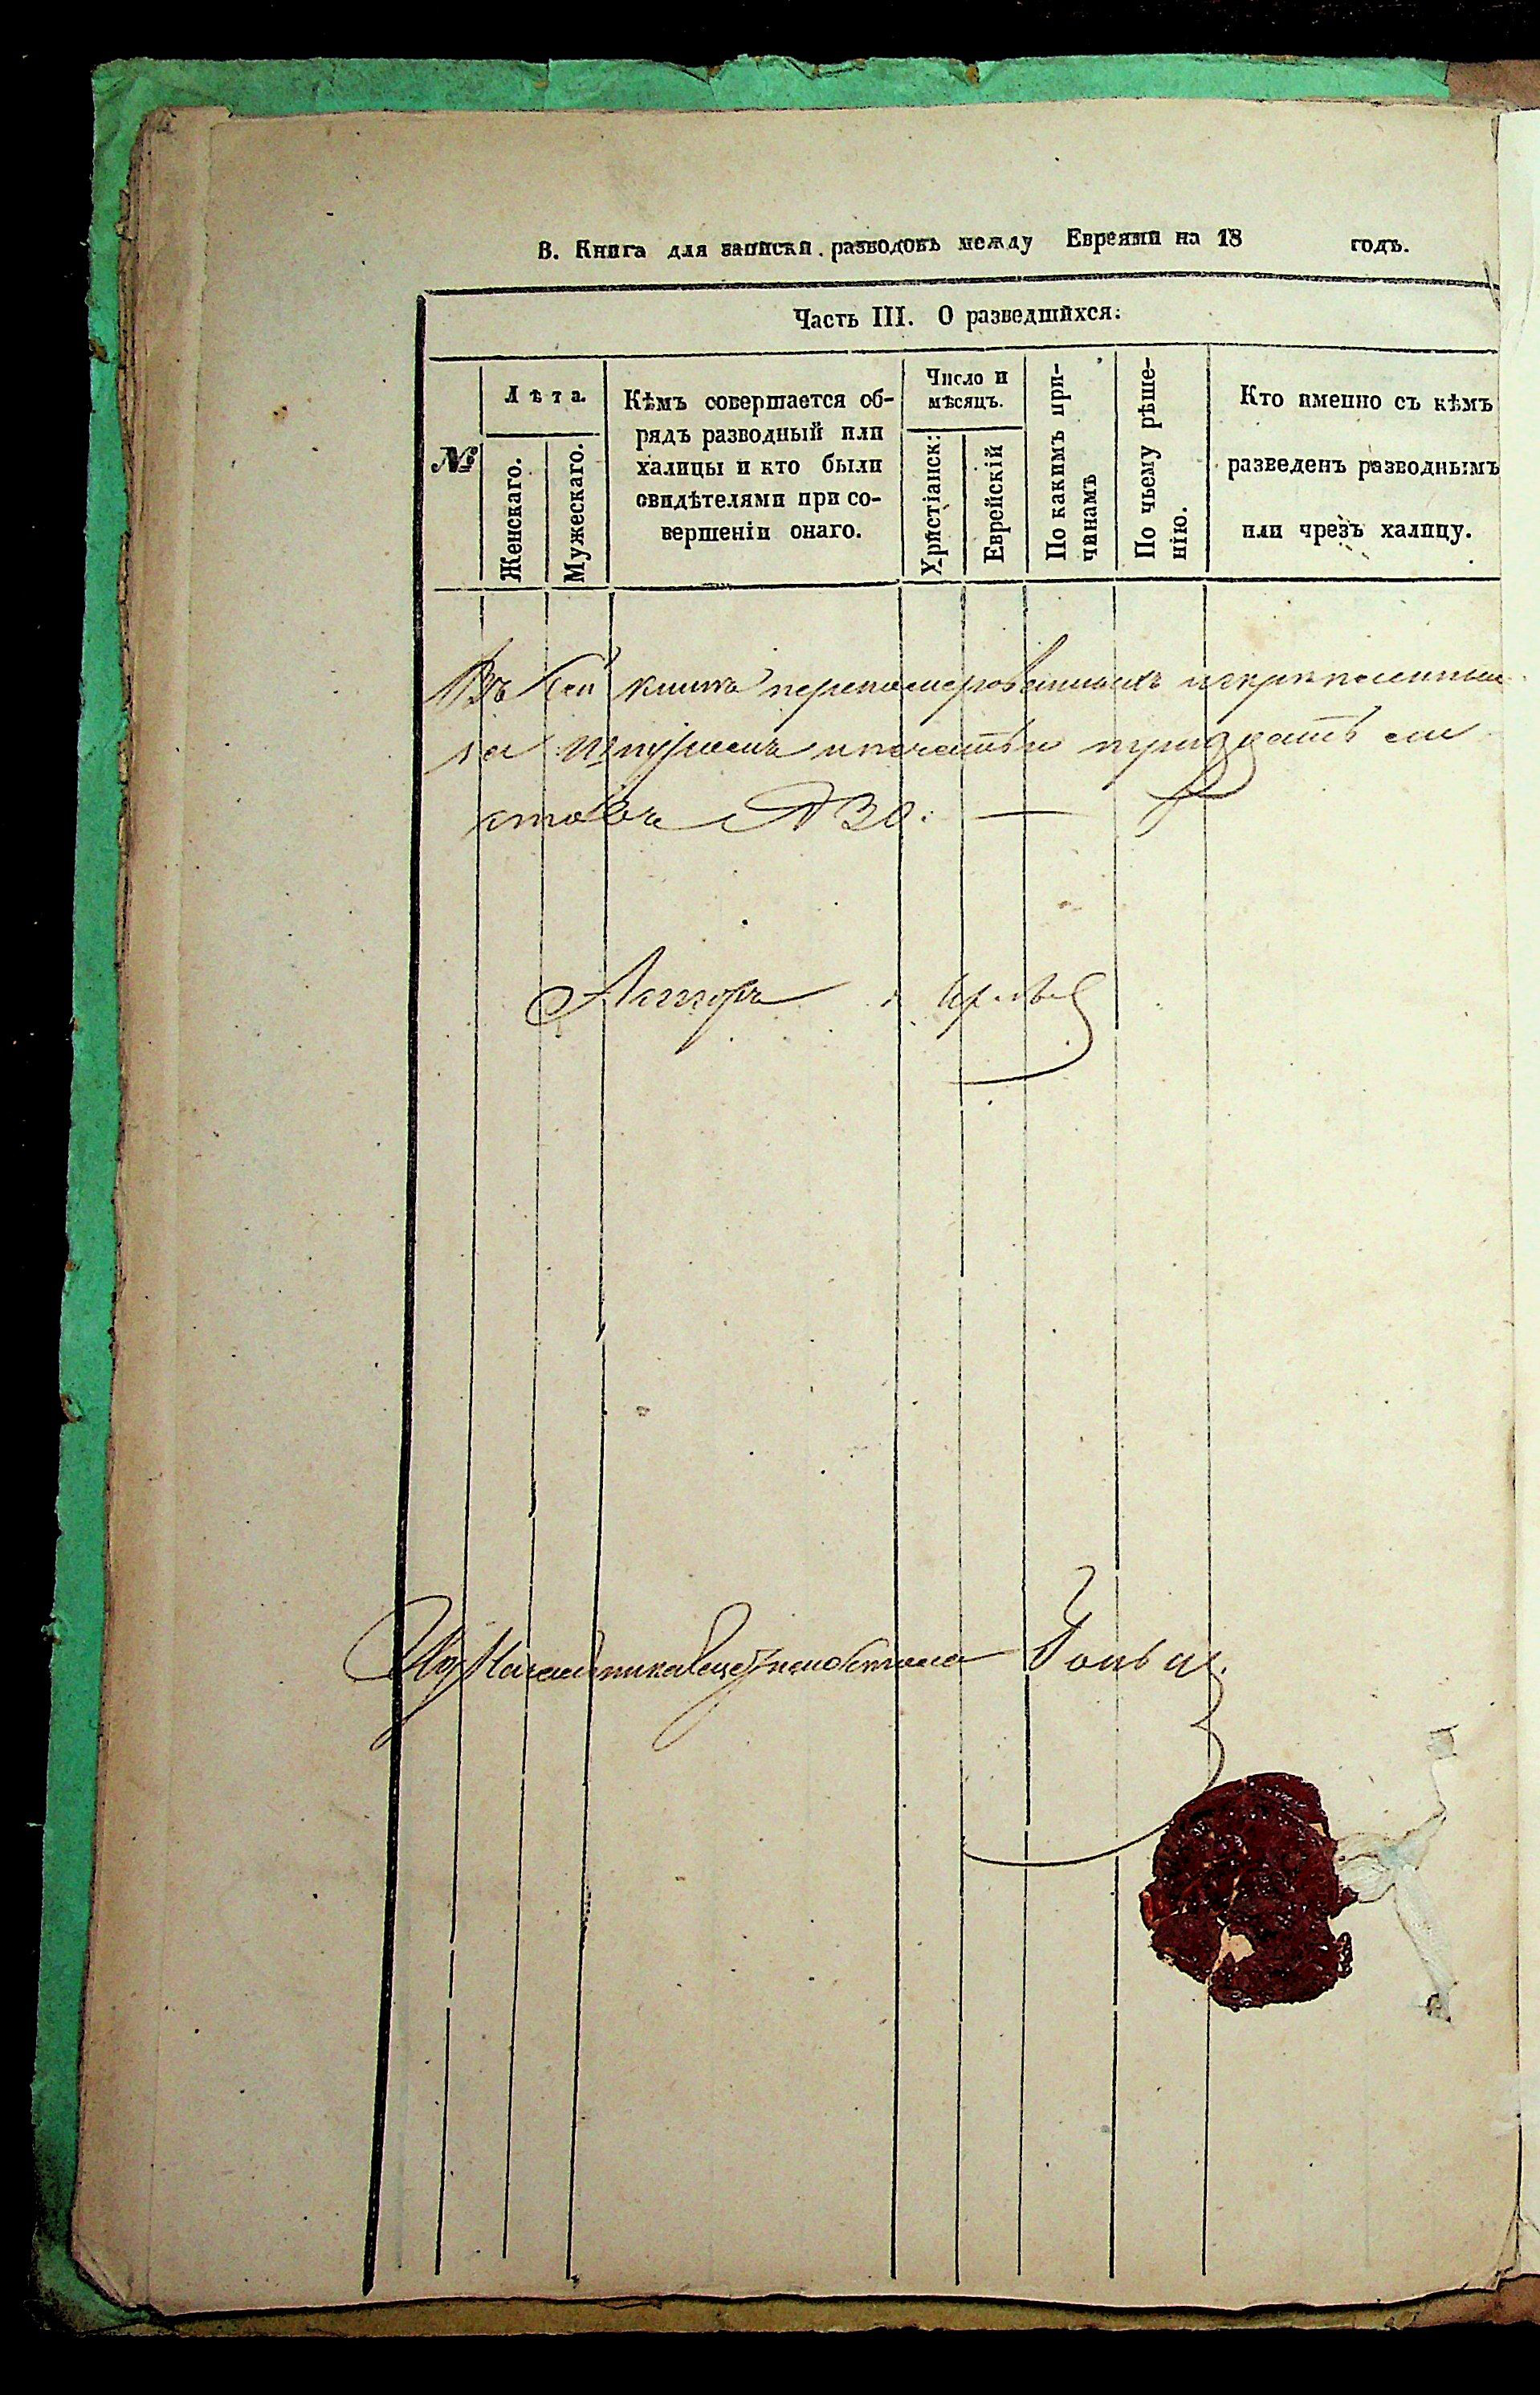 В. Книга для записки разводовъ между Евреями на 18 годъ.
Часть III. О разведшихся.
№
Лѣта.
Женскаго.
Мужескаго.
Кѣмъ совершается об-
рядъ разводный или
халицы и кто были
свидѣтелями при со-
вершеніи онаго.
Число и
мѣсяцъ.
Христіанск:
Еврейскій
По какимъ при-
чинамъ
По чьему рѣше-
нію.
Кто именно съ кѣмъ
разведенъ разводнымъ
или чрезъ халицу.
Въ сей книгѣ перенумерованныхъ
и печатью тридцать ли
стовъ № 30.